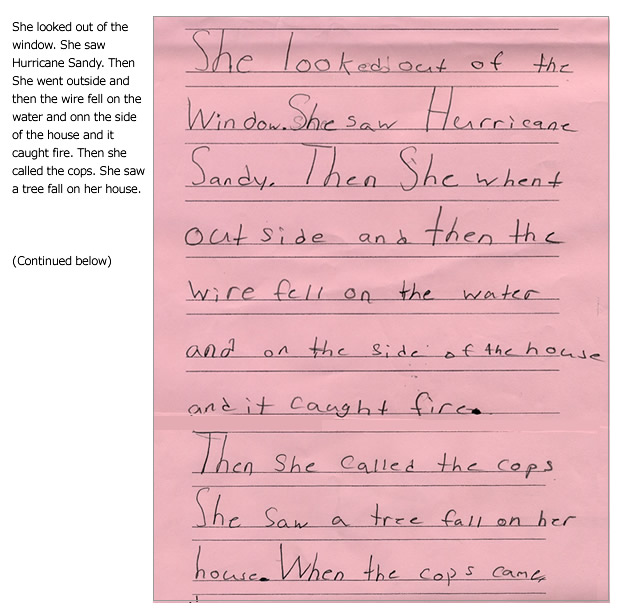 She looked out of the
window. She saw
Hurricane Sandy. Then
She went outside and
then the wire fell on the
water and onn the side
of the house and it
caught fire. Then she
called the cops. She saw
a tree fall on her house.
(Continued below)
She looked out of the
Window. She saw Hurricane
Sandy. Then She whent
out side and then the
wire fell on the water
and on the side of the house
and it caught fire.
Then She called the cops
She saw a tree fall on her
house. When the cops came